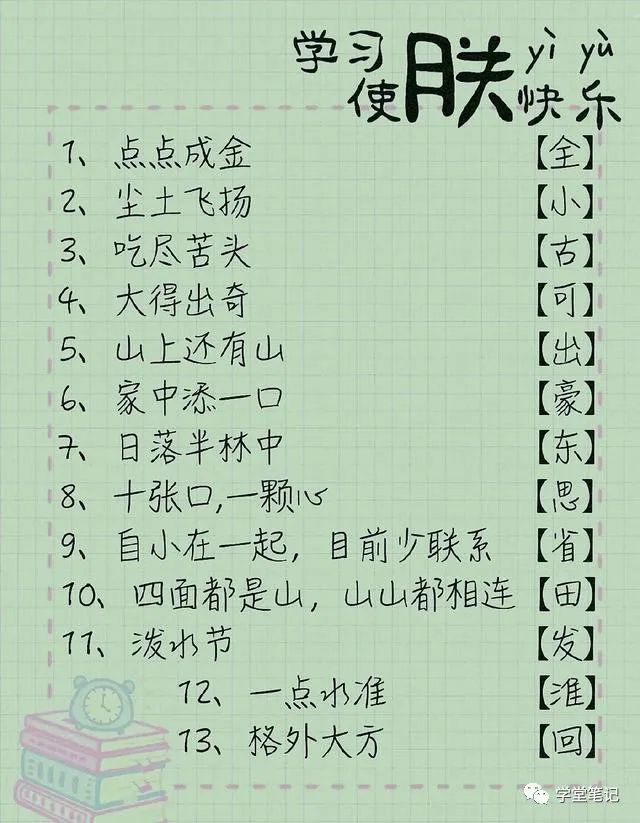 学习
yì yù
使朕快乐
1、点点成金 【全】
2、尘土飞扬 【小】
3、吃尽苦头 【古】
4、大得出奇 【可】
5、山上还有山 【出】
6、家中添一口 【豪】
7、日落半林中 【东】
8、十张口,一颗心 【思】
9、自小在一起，目前少联系 【省】
10、四面都是山，山山都相连 【田】
11、泼水节 【发】
12、一点水准 【淮】
13、格外大方 【回】
学堂笔记